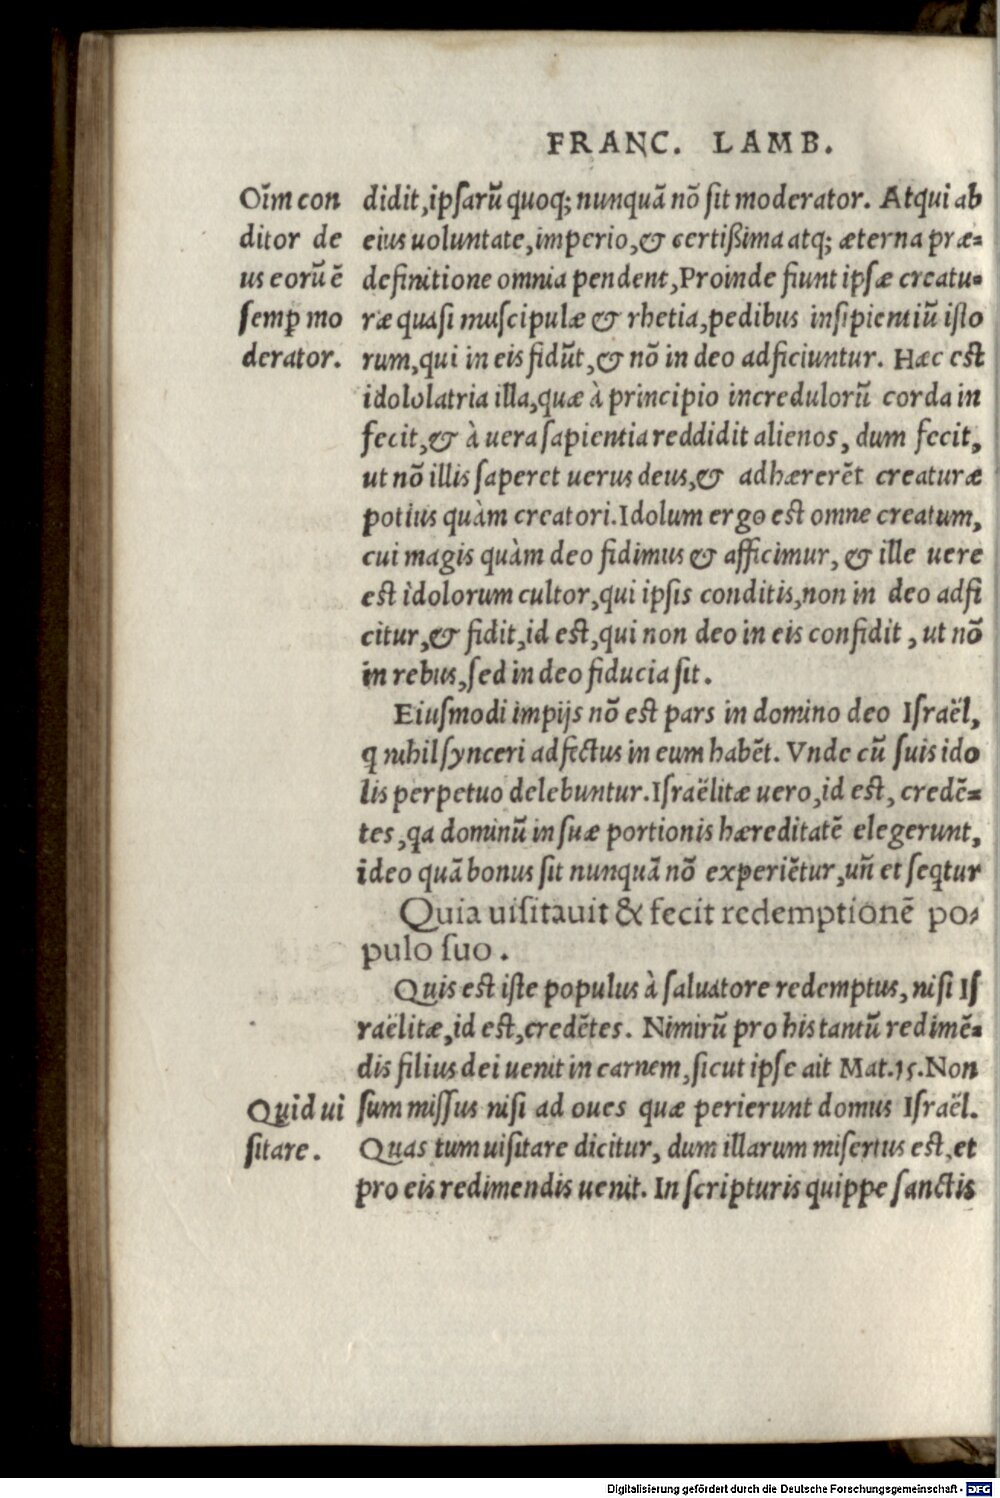 FRANC. LAMB.
Oĩm con
ditor de
us eorū ē
semꝑ mo
derator.
didit, ipsarū quoq; nunquā nō sit moderator. Atqui ab
eius uoluntate, imperio, & certißima atq; æterna præ=
definitione omnia pendent, Proinde fiunt ipsæ creatu=
ræ quasi muscipulæ & rhetia, pedibus insipientiū isto
rum, qui in eis fidūt, & nō in deo adficiuntur. Hæc est
idololatria illa, quæ à principio incredulorū corda in
fecit, & à uera sapientia reddidit alienos, dum fecit,
ut nō illis saperet uerus deus, & adhærerēt creaturæ
potius quàm creatori. Idolum ergo est omne creatum,
cui magis quàm deo fidimus & afficimur, & ille uere
est idolorum cultor, qui ipsis conditis, non in deo adfi
citur, & fidit, id est, qui non deo in eis confidit, ut nō
in rebus, sed in deo fiducia sit.
Eiusmodi impijs nō est pars in domino deo Israël,
q nihil synceri adfectus in eum habēt. Vnde cū suis ido
lis perpetuo delebuntur. Israëlitæ uero, id est, credē=
tes, qa dominū in suæ portionis hæreditatē elegerunt,
ideo quā bonus sit nunquā nō experiētur, uñ et seqtur
Quia uisitauit & fecit redemptionē po=
pulo suo.
Quis est iste populus à saluatore redemptus, nisi Is
raëlitæ, id est, credētes. Nimirū pro his tantū redimē=
dis filius dei uenit in carnem, sicut ipse ait Mat. 15. Non
sum missus nisi ad oues quæ perierunt domus Israël.
Quid ui
sitare.
Quas tum uisitare dicitur, dum illarum misertus est, et
pro eis redimendis uenit. In scripturis quippe sanctis
Digitalisierung gefördert durch die Deutsche Forschungsgemeinschaft - DFG